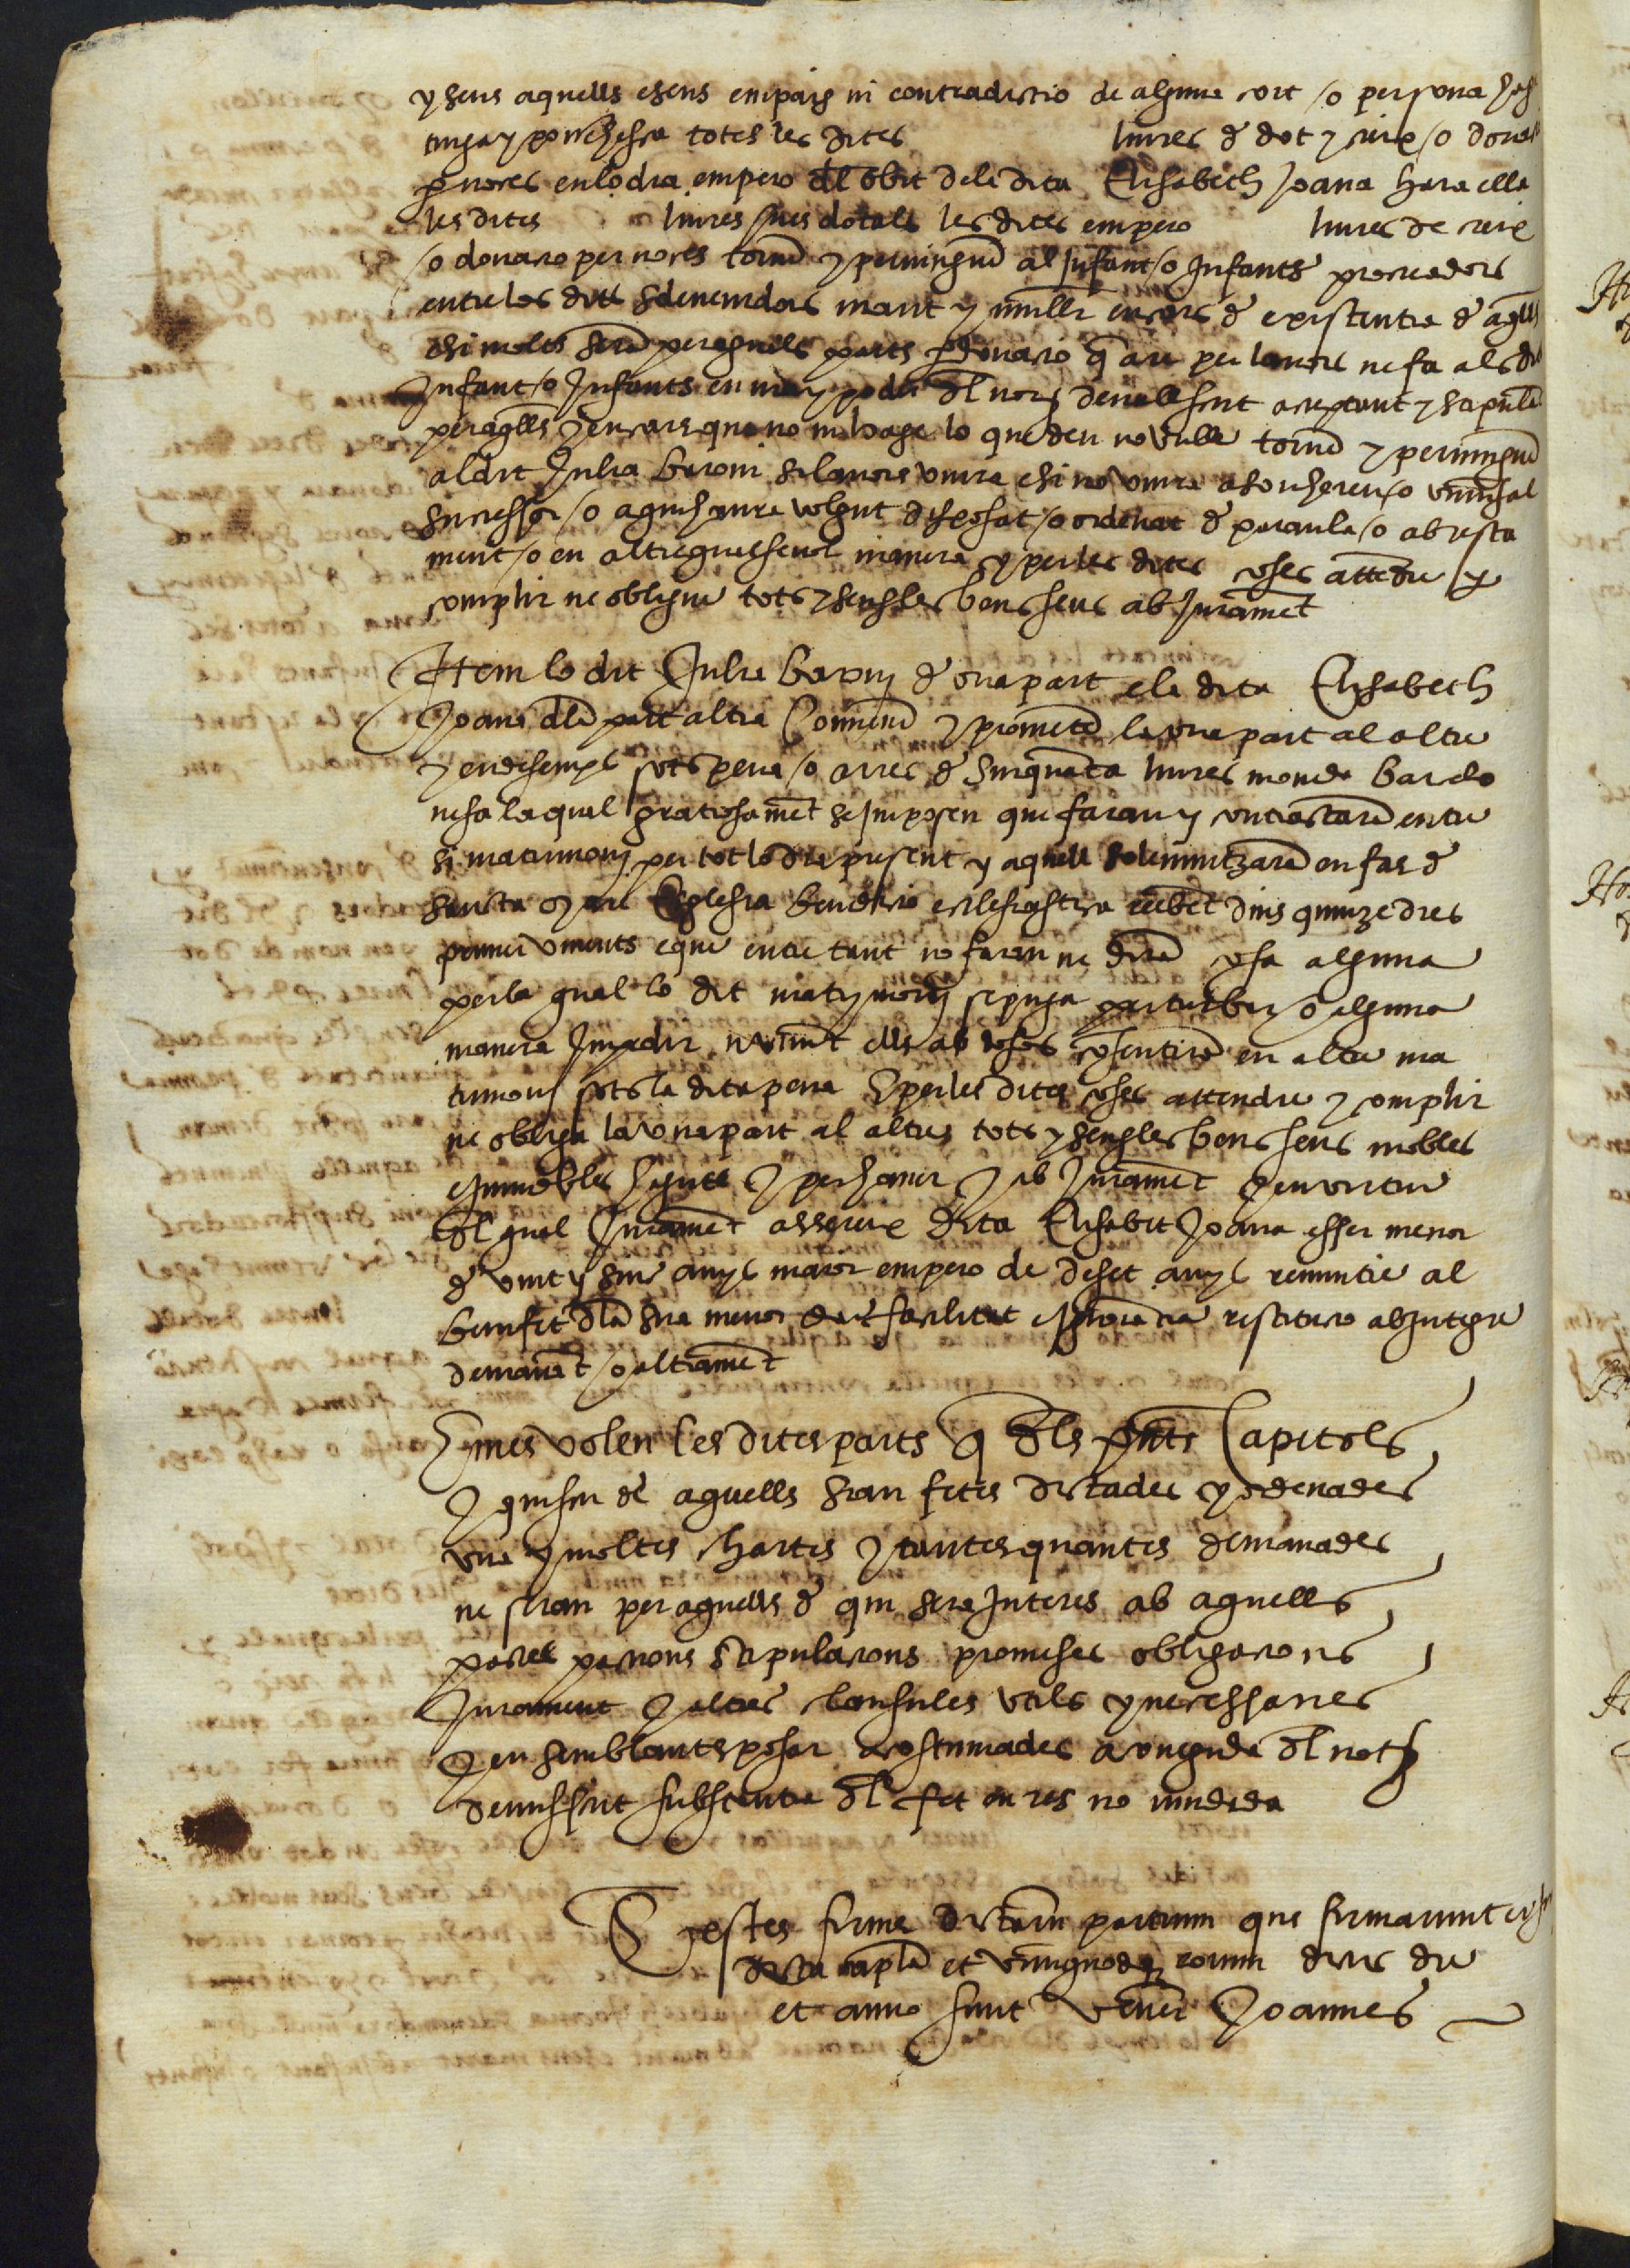 y sens aquells e sens empaig ni contradictio de alguna cort /o persona
tinga y possehesca totes les dites lliures de dot y creix /o donacio
per noces en lo dia empero del obit dela dita Elisabeth Joana hara ella
les dites lliures sues dotals les dites empero lliures de creix
/o donacio per noces torne y pervingue al Infant /o Infants procreadors
entre los dits sdevenidors marit y muller en cars de existentia de aqlls
e si molts seran per eguals parts donacio q̄ are per lavors ne fa als dits
Infant /o Infants en ma y poder dl notj devall scrit acceptant y stipulant
per aqlls y en cars que no ni hage lo que deu no vulla torne y pervingue
al dit Julia Baroni si lavors viura e si no viura a son hereu /o universal
successor /o a qui haura volgut disposat /o ordenat de paraula /o ab testa
ment /o en altre qualsevol manera y per les dites coses attendre y
complir ne obligue tots y sengles bens seus ab Jurament
Item lo dit Julia Baronj de una part e la dita Elisabeth
Joana dla part altra Convenen y prometen la una part al altre
y endesemps sots pena /o arres de Sinquanta lliures moneda Barcelo
nesa la qual gratiosament se Imposen que faran y contractaran entre
si matrimonj per tot lo dia present y aquell solemnitzaran en fas de
Sancta mare Esglesia benedictio eclesiastica rebent dins quinze dies
primer vinents e que entre tant no faran ne diran cosa alguna
per la qual lo dit matrimonj se puga perturbar /o alguna
manera Impedir ells ab dosos consentiran en altre ma
trimonj sots la dita pena E per les dites coses attendre y complir
ne obliga la una part al altres tots y sengles bens seus mobles
e Immobles haguts y per haver y ab Jurament y en virtut
dl qual Jurament asserex dita Elisabet Joana esser menor
de vint y sinc anys maior empero de deset anys renuntie al
benifet dla sua menor edat facilitat e Ignorancia restitucio ab Integre
demanant /o altrament
E mes volen les dites parts q̄ dls pnts Capitols
y quiscu de aquells sian fetes dictades y ordenades
una y moltes chartes y tantes quantes demanades
ne seran per aquells de qui sera Interes ab aquells
pactes pactions stipulacions promeses obligacions
Jurament y altres clausules utils y necessaries
y en semblants posar acostumades a coneguda dl notj
devall scrit substantia dl fet en res no mudada
Testes firme dictarum partium que firmarunt
dicta capla et unumquodq̄ eorum dictis die
et anno sunt vener Joannes